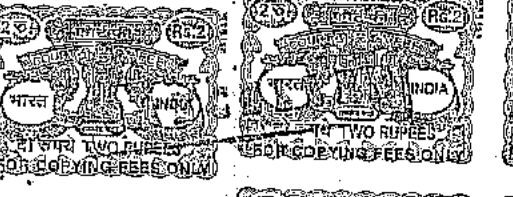 2 रु. Rs.2
COURT FEE
भारत INDIA
दो रुपये TWO RUPEES
FOR COPYING FEES ONLY
2 रु. Rs.2
COURT FEE
भारत INDIA
TWO RUPEES
FOR COPYING FEES ONLY